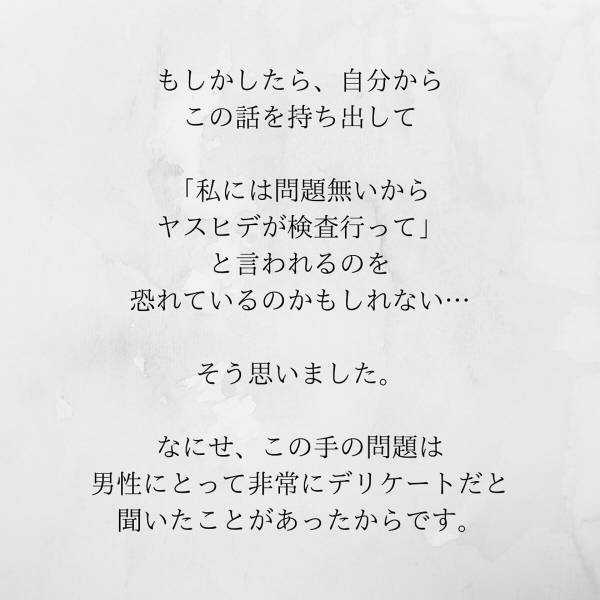 もしかしたら、自分から
この話を持ち出して
「私には問題無いから
ヤスヒデが検査行って」
と言われるのを
恐れているのかもしれない…
そう思いました。
なにせ、この手の問題は
男性にとって非常にデリケートだと
聞いたことがあったからです。